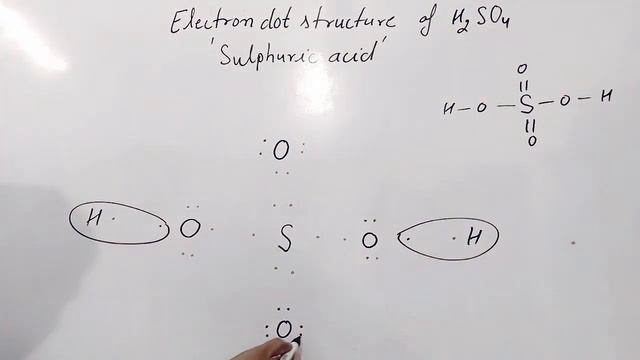 Electron dot structure of H₂SO₄
'Sulphuric acid'
O
||
H-O-S-O-H
||
O
O
H O S O H
O